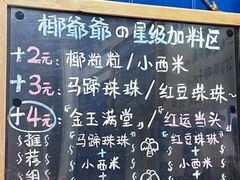 椰爷爷の星级加料区
+2元: 椰粒粒/小西米
+3元: 马蹄珠珠/红豆珠珠~
+4元: "金玉满堂"/"红运当头"
推荐组
马蹄珠珠 红豆珠珠
+ +
小西米 小西米
+ +